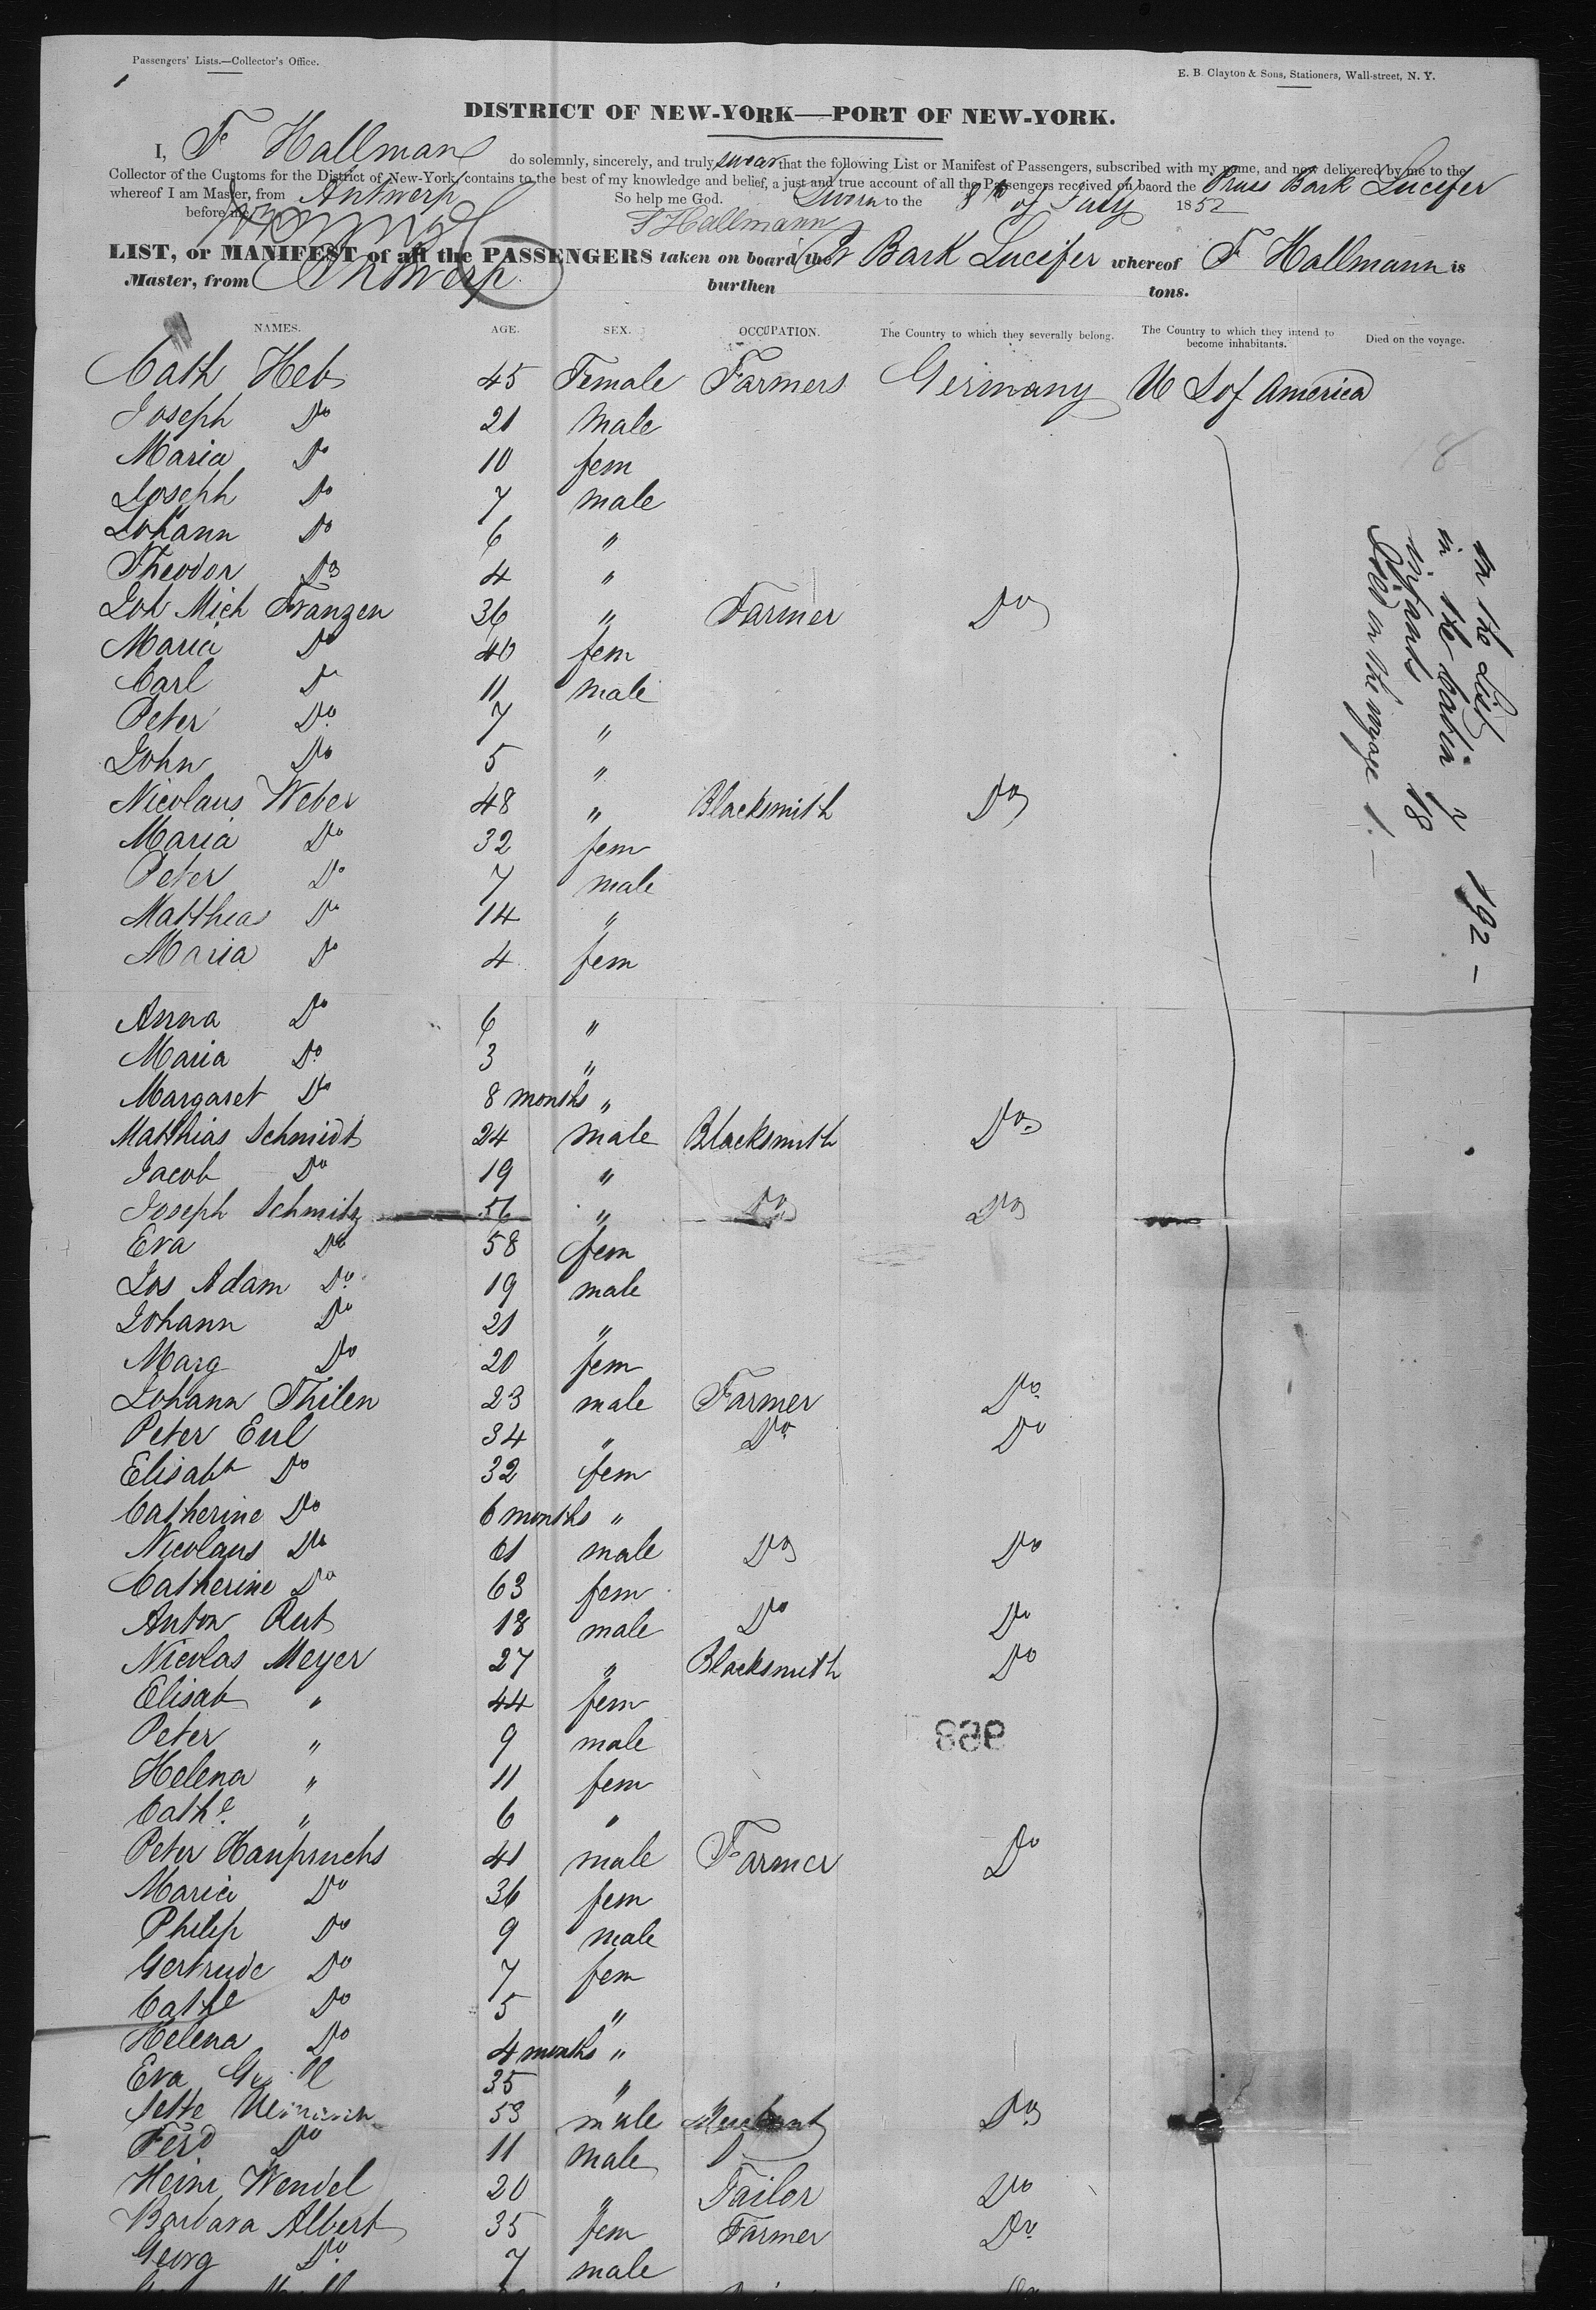 Passengers' Lists.—Collector's Office.
E. B. Clayton & Sons, Stationers, Wall-street, N. Y.
1
DISTRICT OF NEW-YORK—PORT OF NEW-YORK.
I, F Hallmann do solemnly, sincerely, and truly swear that the following List or Manifest of Passengers, subscribed with my name, and now delivered by me to the
Collector of the Customs for the District of New-York, contains to the best of my knowledge and belief, a just and true account of all the Passengers received on baord the Pruss Bark Lucifer
whereof I am Master, from Antwerp So help me God. Sworn to the 8th of July 1852
before me F Hallmann
LIST, or MANIFEST of all the PASSENGERS taken on board the Bark Lucifer whereof F Hallmann is
Master, from Antwerp burthen tons.
NAMES. AGE. SEX. OCCUPATION. The Country to which they severally belong. The Country to which they intend to become inhabitants. Died on the voyage.
Cath Heb 45 Female Farmers Germany U S of America
Joseph Do 21 male
Maria Do 10 fem
Joseph Do 7 male
Johann Do 6 "
Theodor Do 4 "
Joh Mich Franzen 36 " Farmer Do
Maria Do 40 fem
Carl Do 11 male
Peter Do 7 "
John Do 5 "
Nicolaus Weber 48 " Blacksmith Do
Maria Do 32 fem
Peter Do 7 male
Matthias Do 14 "
Maria Do 4 fem
Anna Do 6 "
Maria Do 3 "
Margaret Do 8 months "
Matthias Schmidt 24 male Blacksmith Do
Jacob Do 19 "
Joseph Schmitz 56 " Do Do
Eva Do 58 fem
Jos Adam Do 19 male
Johann Do 21 "
Marg Do 20 fem
Johann Thilen 23 male Farmer Do
Peter Eul 34 " Do Do
Elisabh Do 32 fem
Catherine Do 6 months "
Nicolaus Do 61 male Do Do
Catherine Do 63 fem
Anton Rut 18 male Do Do
Nicolas Meyer 27 " Blacksmith Do
Elisab " 44 fem
Peter " 9 male
Helena " 11 fem
Cathe " 6 "
Peter Hauprichs 41 male Farmer Do
Maria Do 36 fem
Philip Do 9 male
Gertrude Do 7 fem
Cathe Do 5 "
Helena Do 4 months "
Eva 35 "
53 male Merchant Do
Ferd Do 11 male
Heinr Wendel 20 " Tailor Do
Barbara Albert 35 fem Farmer Do
Georg Do 7 male
on the List 192 –
in the Cabin 2
infants 18
Died on the voyage 1 –
898